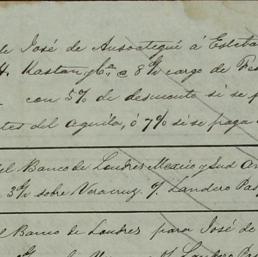 de José de Ansoategui á Esteba
H. Kastan y Ca. @ 8 % cargo de Fe
con 5% de descuento si se p
tes del aquila, ó 7% si se paga
el Banco de Londres Mexico y Sud A
3% sobre Veracruz y/ Landero Pas
el Banco de Londres para José de